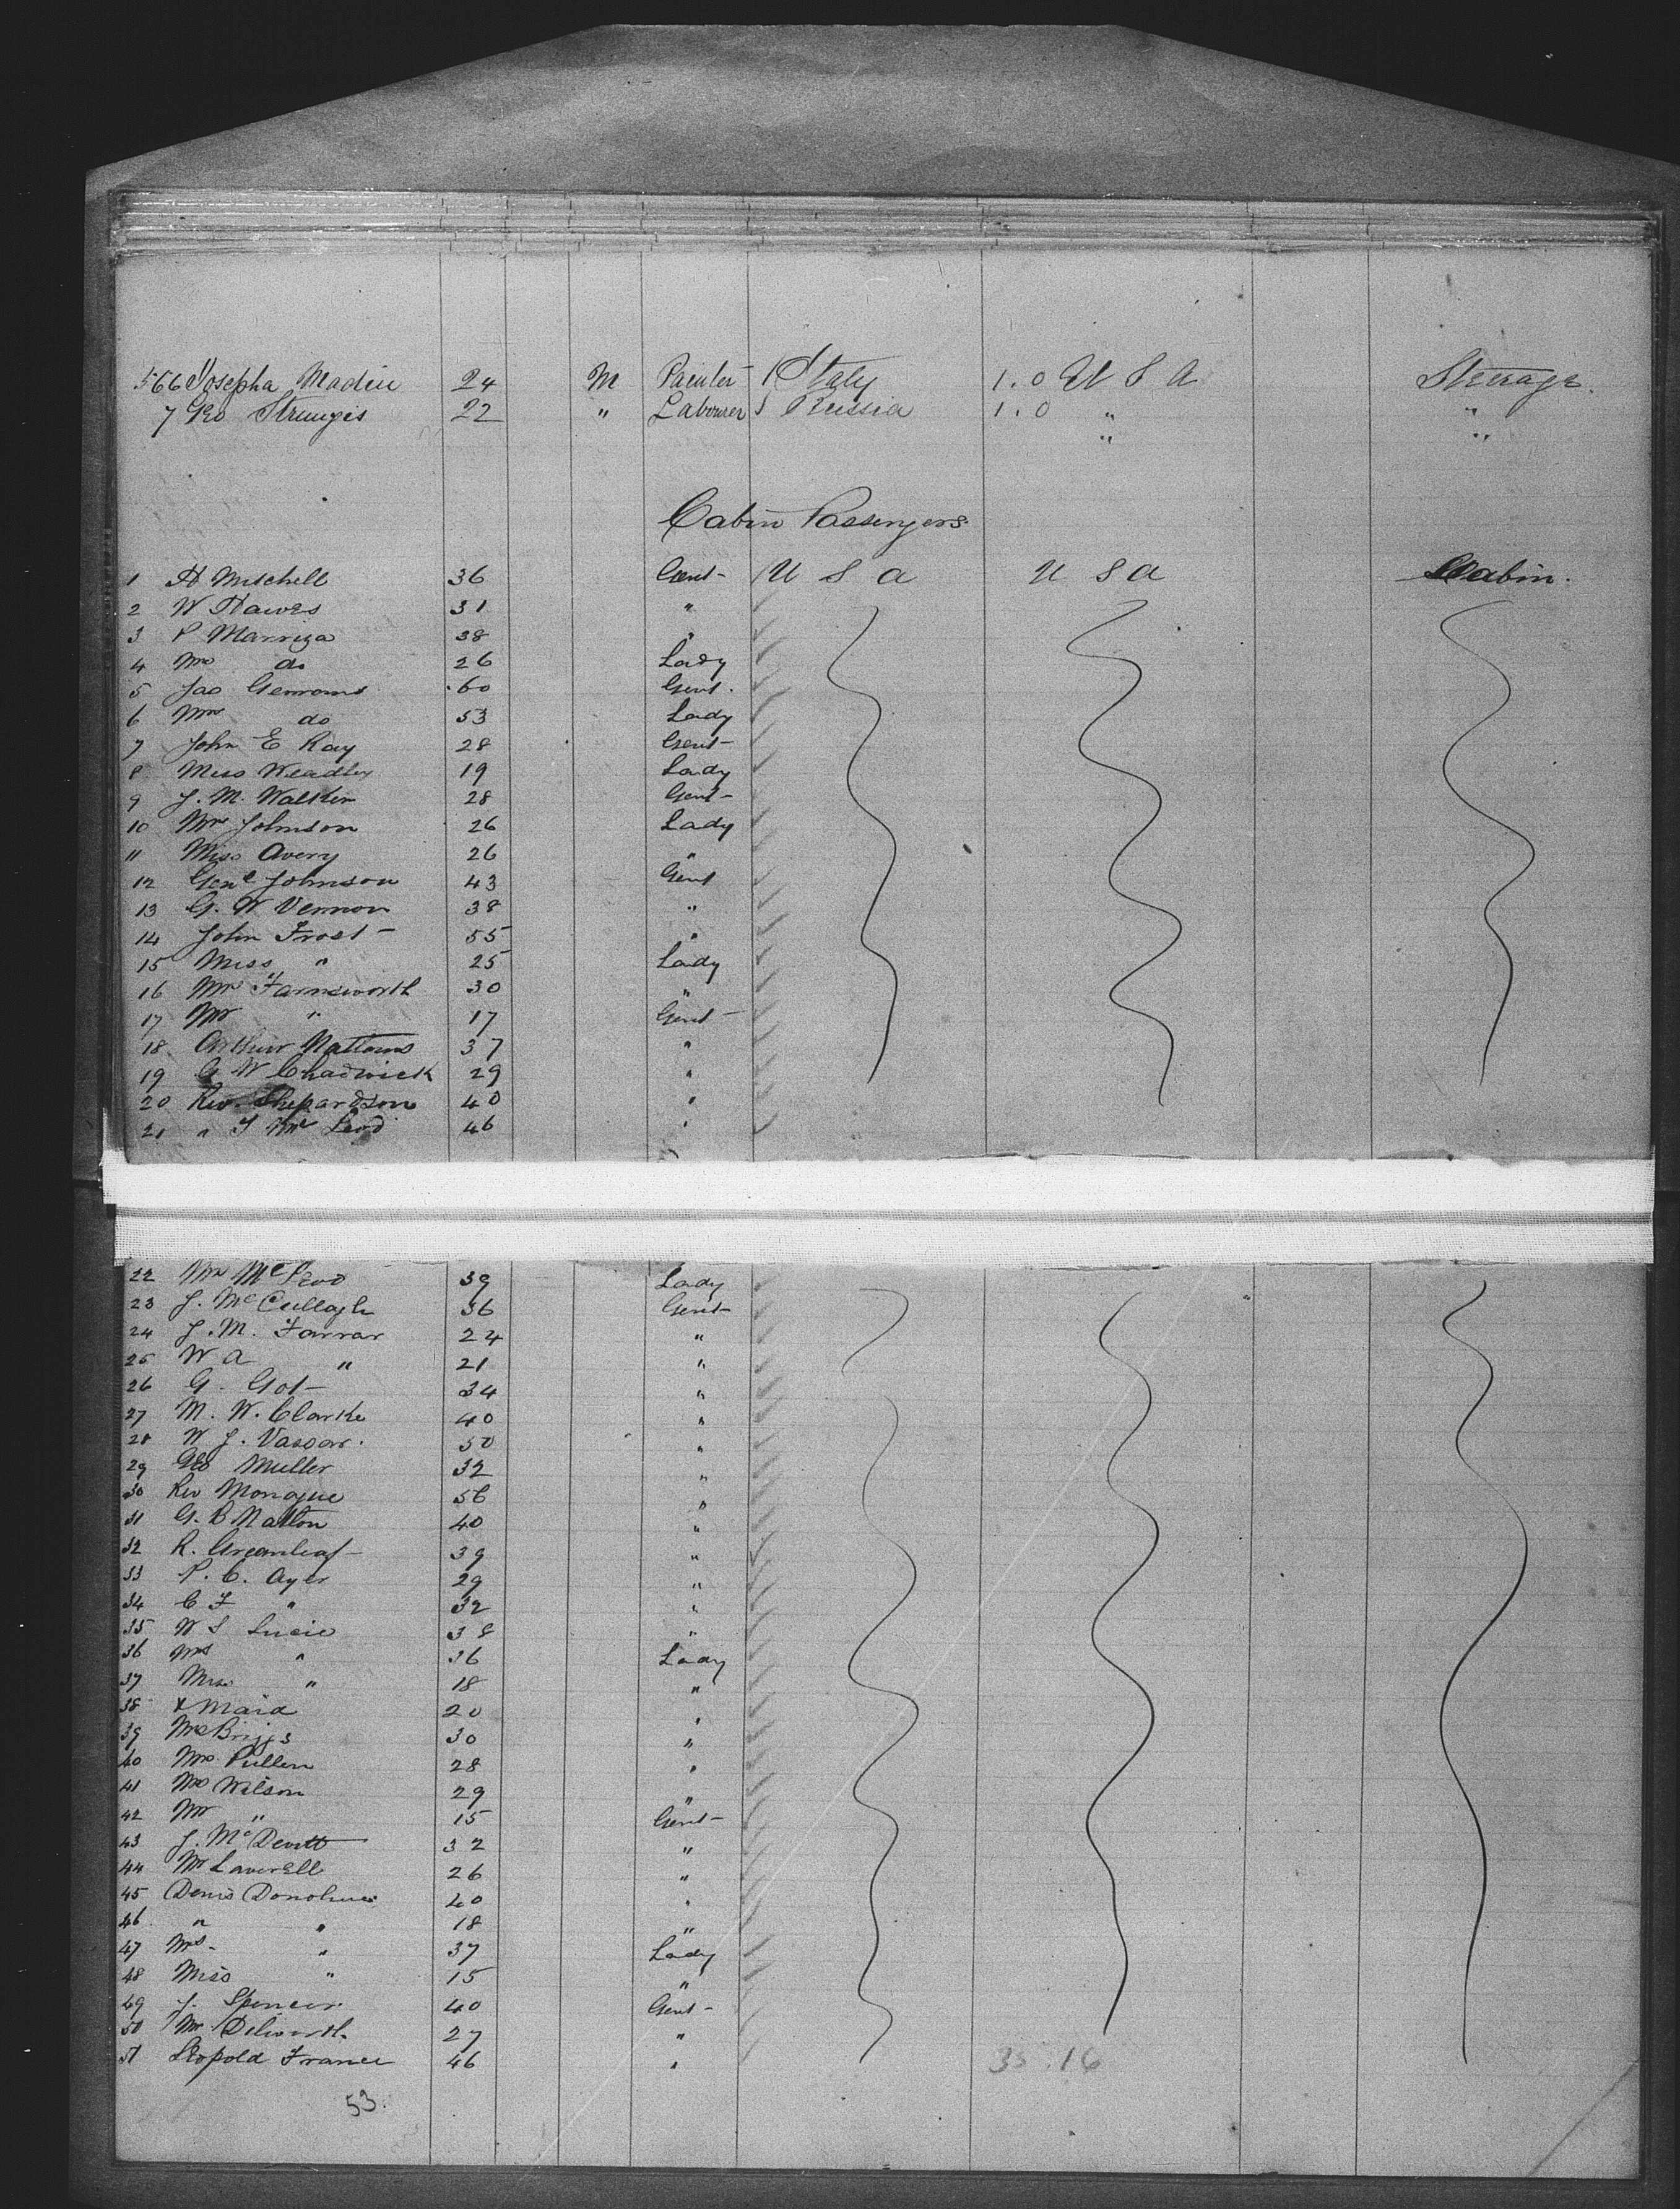 566 Josepha Madin 24 M Painter 1 Italy 1.0 U S A Steerage.
7 Geo Strungis 22 " Labourer 1 Russia 1.0 " "
" "
Cabin Passengers
1 H Mitchell 36 Gent- U S A U S A Cabin.
2 W Hawes 31 "
3 P Marriza 38 "
4 Mrs do 26 Lady
5 Jas 60 Gent.
6 Mrs do 53 Lady
7 John E Ray 28 Gent-
8 Miss Weadley 19 Lady
9 J. M. Walker 28 Gent-
10 Mrs Johnson 26 Lady
11 Miss Avery 26 "
12 Genl Johnson 43 Gent
13 G. W Vernon 38 "
14 John Frost- 55 "
15 Miss " 25 Lady
16 Mrs Farnsworth 30 "
17 Mr " 17 Gent-
18 Arthur 37 "
19 G W Chadwick 29 "
20 Rev. Shepardson 40 "
21 " Mc Leod 46 "
22 Mrs McLeod 39 Lady
23 J. McCullagh 36 Gent-
24 J. M. Farrar 24 "
25 W A " 21 "
26 G. Got- 34 "
27 M. W. Clarke 40 "
28 W J. Vassar. 50 "
29 Geo Muller 32 "
30 Rev Monague 56 "
31 G. B 40 "
32 R. Greenleaf- 39 "
33 P. C. Ayer 29 "
34 C F " 32 "
35 W S 38 "
36 Mrs " 36 Lady
37 Miss " 18 "
38 & Maid 20 "
39 Mrs Briggs 30 "
40 Mrs Pullen 28 "
41 Mrs Wilson 29 "
42 Mr " 15 Gent-
43 J. McDevitt 32 "
44 Mr Laverell 26 "
45 Denis Donohue 40 "
46 " " 18 "
47 Mrs- " 37 Lady
48 Miss " 15 "
49 J. Spencer 40 Gent-
50 Mr Dilworth. 27 "
51 Leopold France 46 "
35.16
53.